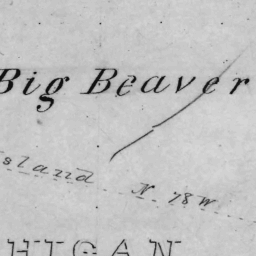 Big Beaver
sland N 78 W
HIGAN